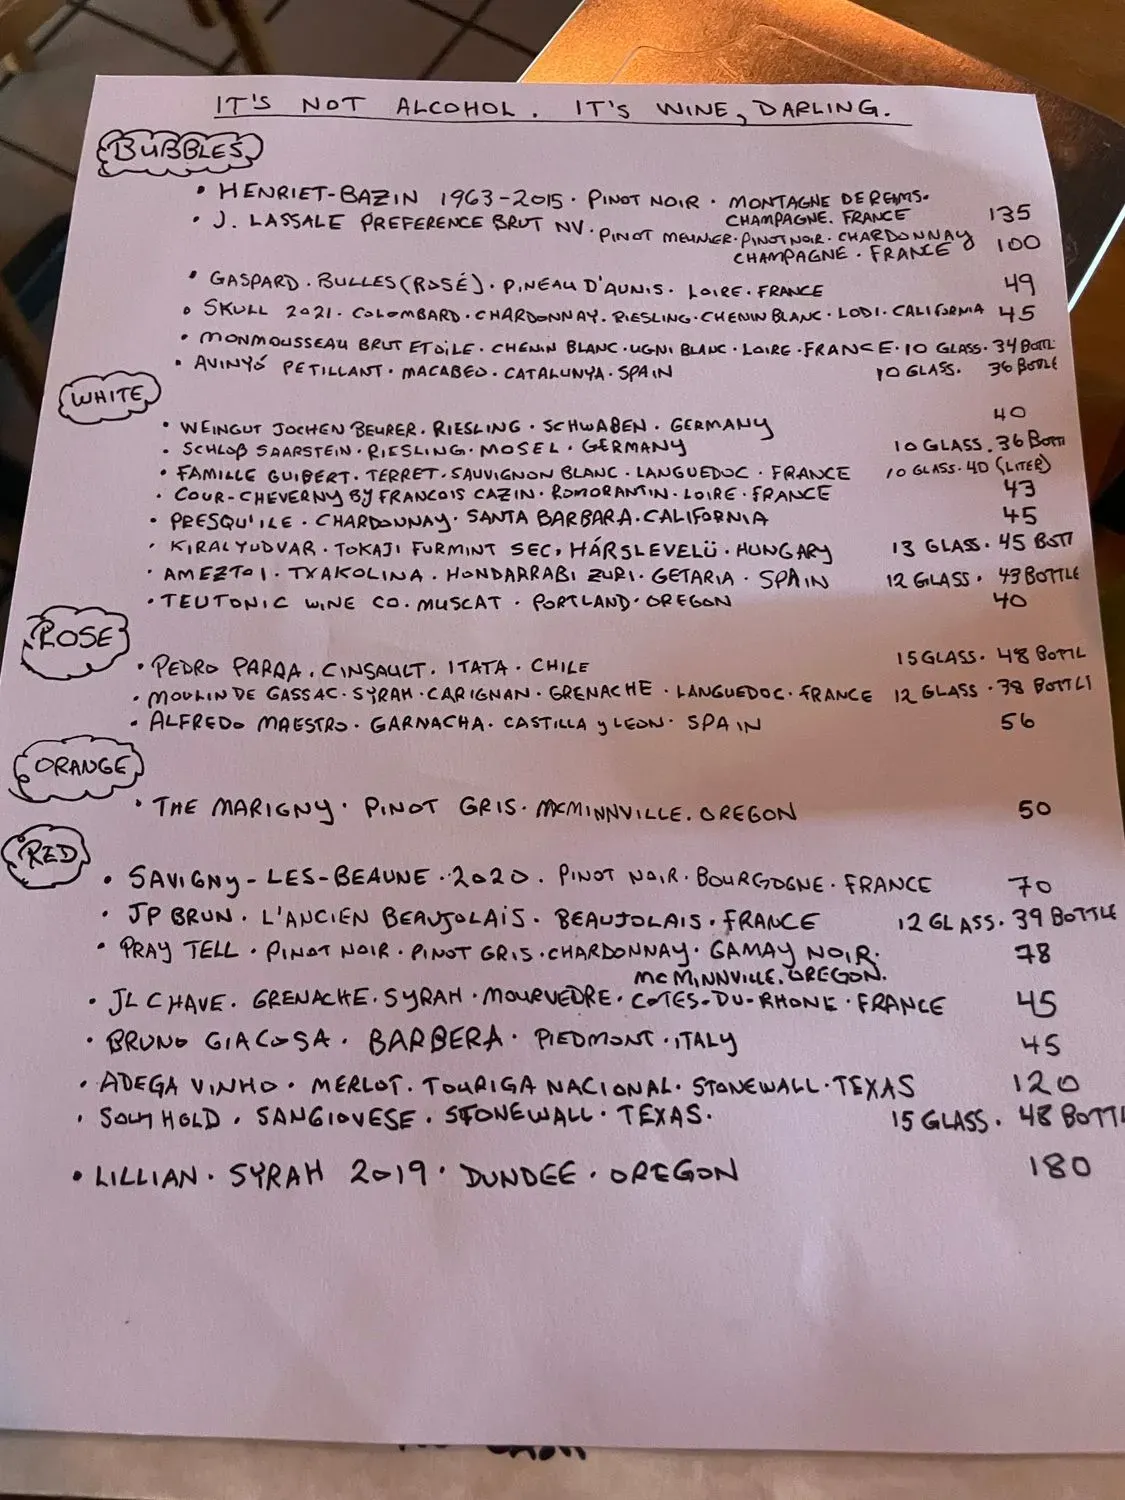 IT'S NOT ALCOHOL. IT'S WINE, DARLING.
BUBBLES
• HENRIET-BAZIN 1963-2015 · PINOT NOIR · MONTAGNE DE REIMS.
CHAMPAGNE. FRANCE 135
• J. LASSALE PREFERENCE BRUT NV. PINOT MEUNIER. PINOT NOIR. CHARDONNAY
CHAMPAGNE. FRANCE 100
• GASPARD. BULLES (ROSÉ). PINEAU D'AUNIS. LOIRE. FRANCE 49
• SKULL 2021. COLOMBARD. CHARDONNAY. RIESLING. CHENIN BLANC. LODI. CALIFORNIA 45
• MONMOUSSEAU BRUT ETOILE. CHENIN BLANC. UGNI BLANC. LOIRE. FRANCE. 10 GLASS. 34 BOTTL
• AVINYÓ PETILLANT. MACABEO. CATALUNYA. SPAIN 10 GLASS. 36 BOTTLE
WHITE
• WEINGUT JOCHEN BEURER. RIESLING. SCHWABEN. GERMANY 40
• SCHLOß SAARSTEIN. RIESLING. MOSEL. GERMANY 10 GLASS. 36 BOTTL
• FAMILLE GUIBERT. TERRET. SAUVIGNON BLANC. LANGUEDOC. FRANCE 10 GLASS. 40 (LITER)
• COUR-CHEVERNY BY FRANCOIS CAZIN. ROMORANTIN. LOIRE. FRANCE 43
• PRESQU'ILE. CHARDONNAY. SANTA BARBARA. CALIFORNIA 45
• KIRALYUDVAR. TOKAJI FURMINT SEC, HÁRSLEVELÜ. HUNGARY 13 GLASS. 45 BOTT
• AMEZTOI. TXAKOLINA. HONDARRABI ZURI. GETARIA. SPAIN 12 GLASS. 43 BOTTLE
• TEUTONIC WINE CO. MUSCAT. PORTLAND. OREGON 40
ROSE
• PEDRO PARRA. CINSAULT. ITATA. CHILE 15 GLASS. 48 BOTTL
• MOULIN DE GASSAC. SYRAH. CARIGNAN. GRENACHE. LANGUEDOC. FRANCE 12 GLASS. 38 BOTTLE
• ALFREDO MAESTRO. GARNACHA. CASTILLA y LEON. SPAIN 56
ORANGE
• THE MARIGNY. PINOT GRIS. MCMINNVILLE. OREGON 50
RED
• SAVIGNY-LES-BEAUNE. 2020. PINOT NOIR. BOURGOGNE. FRANCE 70
• JP BRUN. L'ANCIEN BEAUJOLAIS. BEAUJOLAIS. FRANCE 12 GLASS. 39 BOTTLE
• PRAY TELL. PINOT NOIR. PINOT GRIS. CHARDONNAY. GAMAY NOIR. 78
MCMINNVILLE. OREGON.
• JL CHAVE. GRENACHE. SYRAH. MOURVEDRE. COTES-DU-RHONE. FRANCE 45
• BRUNO GIACOSA. BARBERA. PIEDMONT. ITALY 45
• ADEGA VINHO. MERLOT. TOURIGA NACIONAL. STONEWALL. TEXAS 120
• SOUTHOLD. SANGIOVESE. STONEWALL. TEXAS. 15 GLASS. 48 BOTTL
• LILLIAN. SYRAH 2019. DUNDEE. OREGON 180